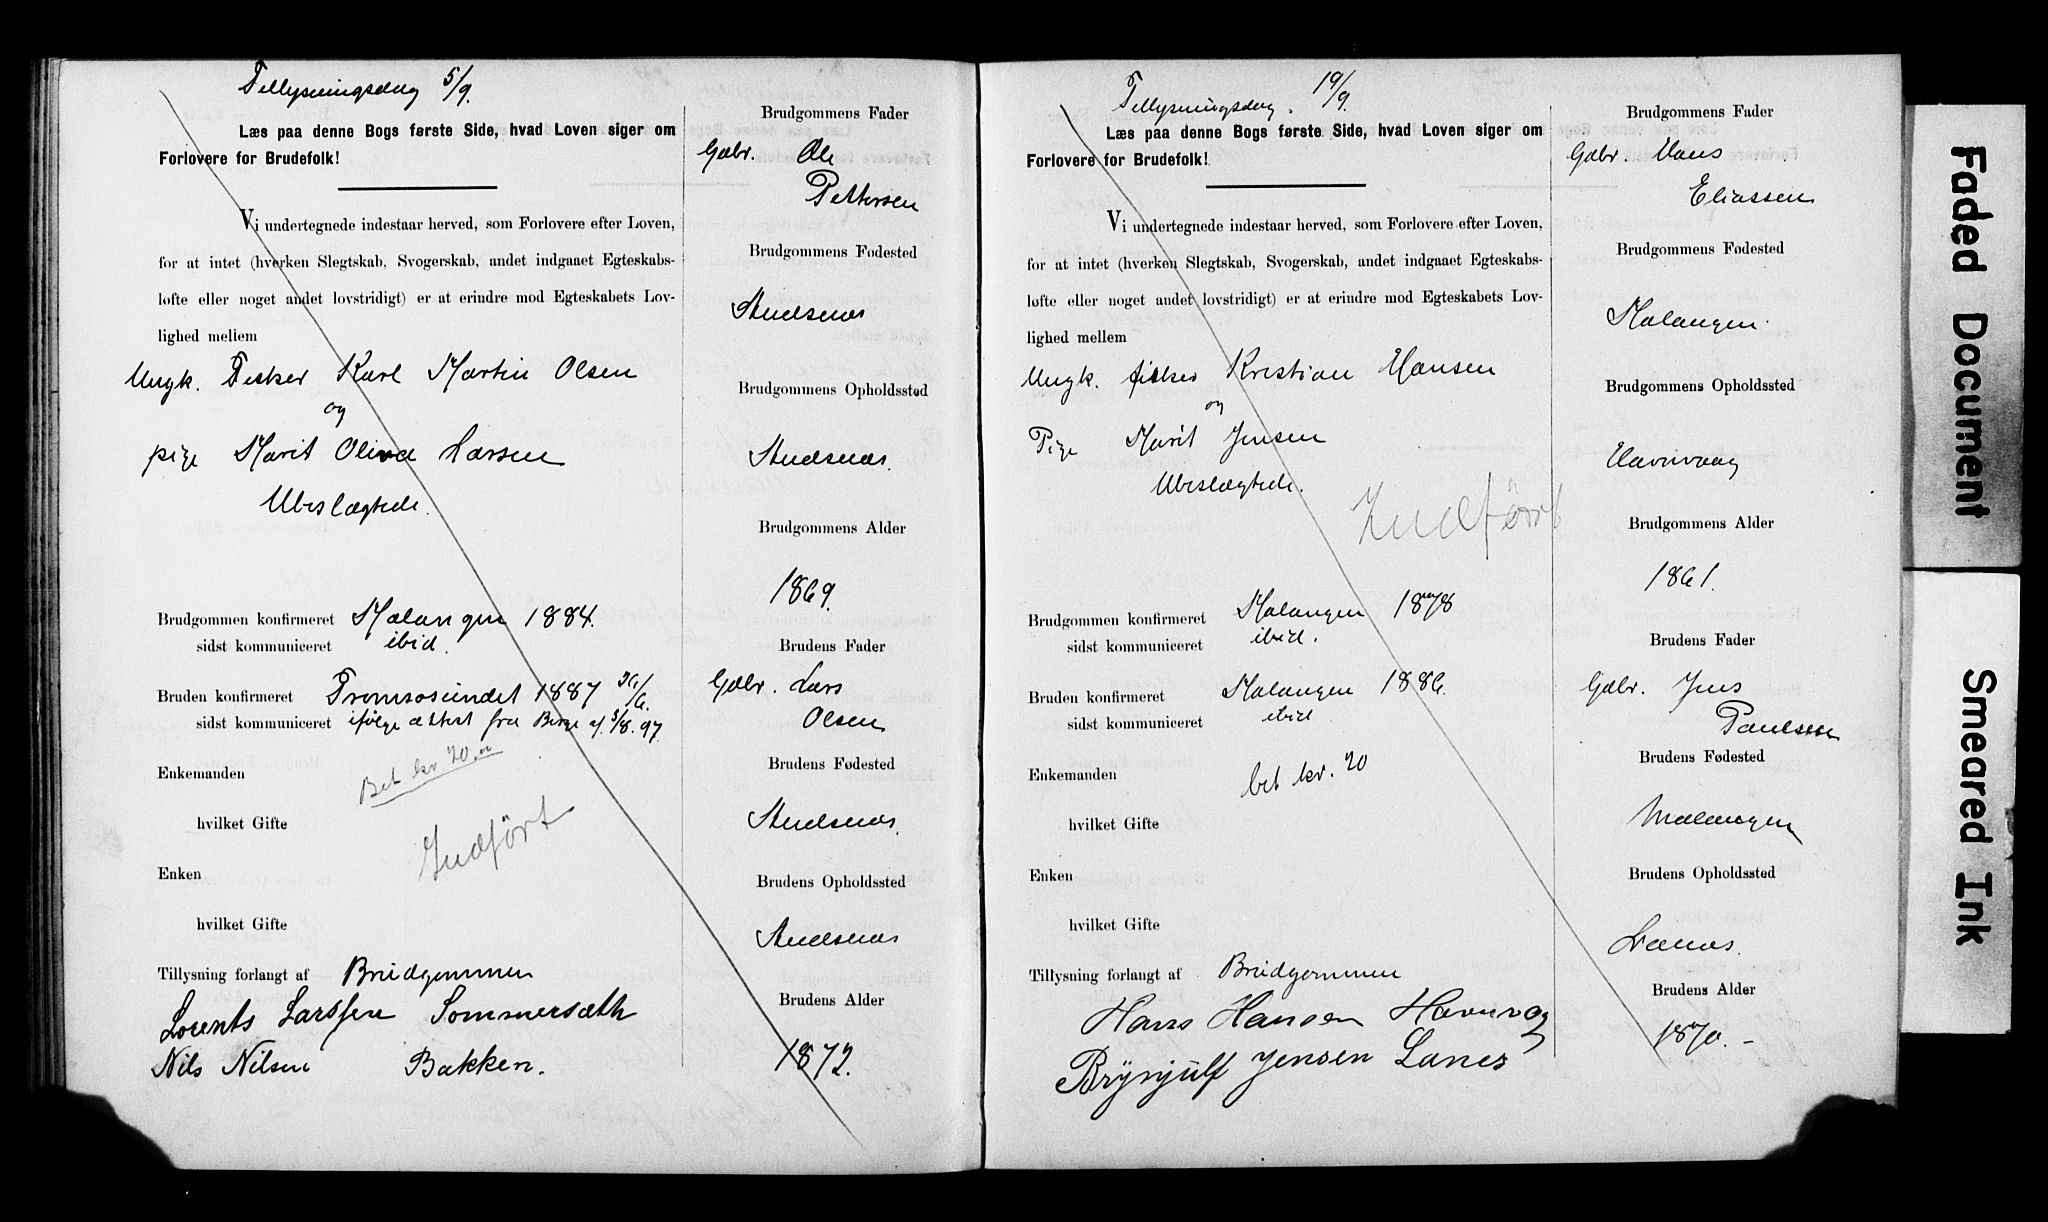 Tillysningsdag 5/9.
Læs paa denne Bogs første Side, hvad Loven siger om
Forlovere for Brudefolk!
Vi undertegnede indestaar herved, som Forlovere efter Loven,
for at intet (hverken Slegtskab, Svogerskab, andet indgaaet Egteskabs-
løfte eller noget andet lovstridigt) er at erindre mod Egteskabets Lov-
lighed mellem
Ungk. Fisker Karl Martin Olsen
og
pige Marit Oliva Larsen
Ubeslægtede.
Brudgommen konfirmeret Malangen 1884.
sidst kommuniceret ibid.
Bruden konfirmeret Tromsøsundet 1887
sidst kommuniceret ifølge attest fra 5/8. 97.
Bet kr. 20
Enkemanden
hvilket Gifte
Indført
Enken
hvilket Gifte
Tillysning forlangt af Brudgommen
Lorents Larssen Sommersæth
Nils Nilsen Bakken.
Brudgommens Fader
Gdbr. Ole
Pettersen
Brudgommens Fødested
Andsnes
Brudgommens Opholdssted
Andsnes.
Brudgommens Alder
1869.
Brudens Fader
Gdbr. Lars
Olsen
Brudens Fødested
Andsnes.
Brudens Opholdssted
Andsnes
Brudens Alder
1872.
Tillysningsdag. 19/9.
Læs paa denne Bogs første Side, hvad Loven siger om
Forlovere for Brudefolk!
Vi undertegnede indestaar herved, som Forlovere efter Loven,
for at intet (hverken Slegtskab, Svogerskab, andet indgaaet Egteskabs-
løfte eller noget andet lovstridigt) er at erindre mod Egteskabets Lov-
lighed mellem
Ungk. fisker Kristian Hansen
og
Pige Marit Jensen
Ubeslægtede.
Indført
Brudgommen konfirmeret Malangen 1878
sidst kommuniceret ibid.
Bruden konfirmeret Malangen 1886.
sidst kommuniceret ibid
Enkemanden
bet kr. 20
hvilket Gifte
Enken
hvilket Gifte
Tillysning forlangt af Brudgommen
Hans Hansen Havnvog
Brynjulf Jensen Lanes
Brudgommens Fader
Gdbr. Hans
Eliassen
Brudgommens Fødested
Malangen
Brudgommens Opholdssted
Havnvaag
Brudgommens Alder
1861.
Brudens Fader
Gdbr. Jens
Paulsen
Brudens Fødested
Malangen
Brudens Opholdssted
Lanes.
Brudens Alder
1870. -
Faded Document
Smeared Ink